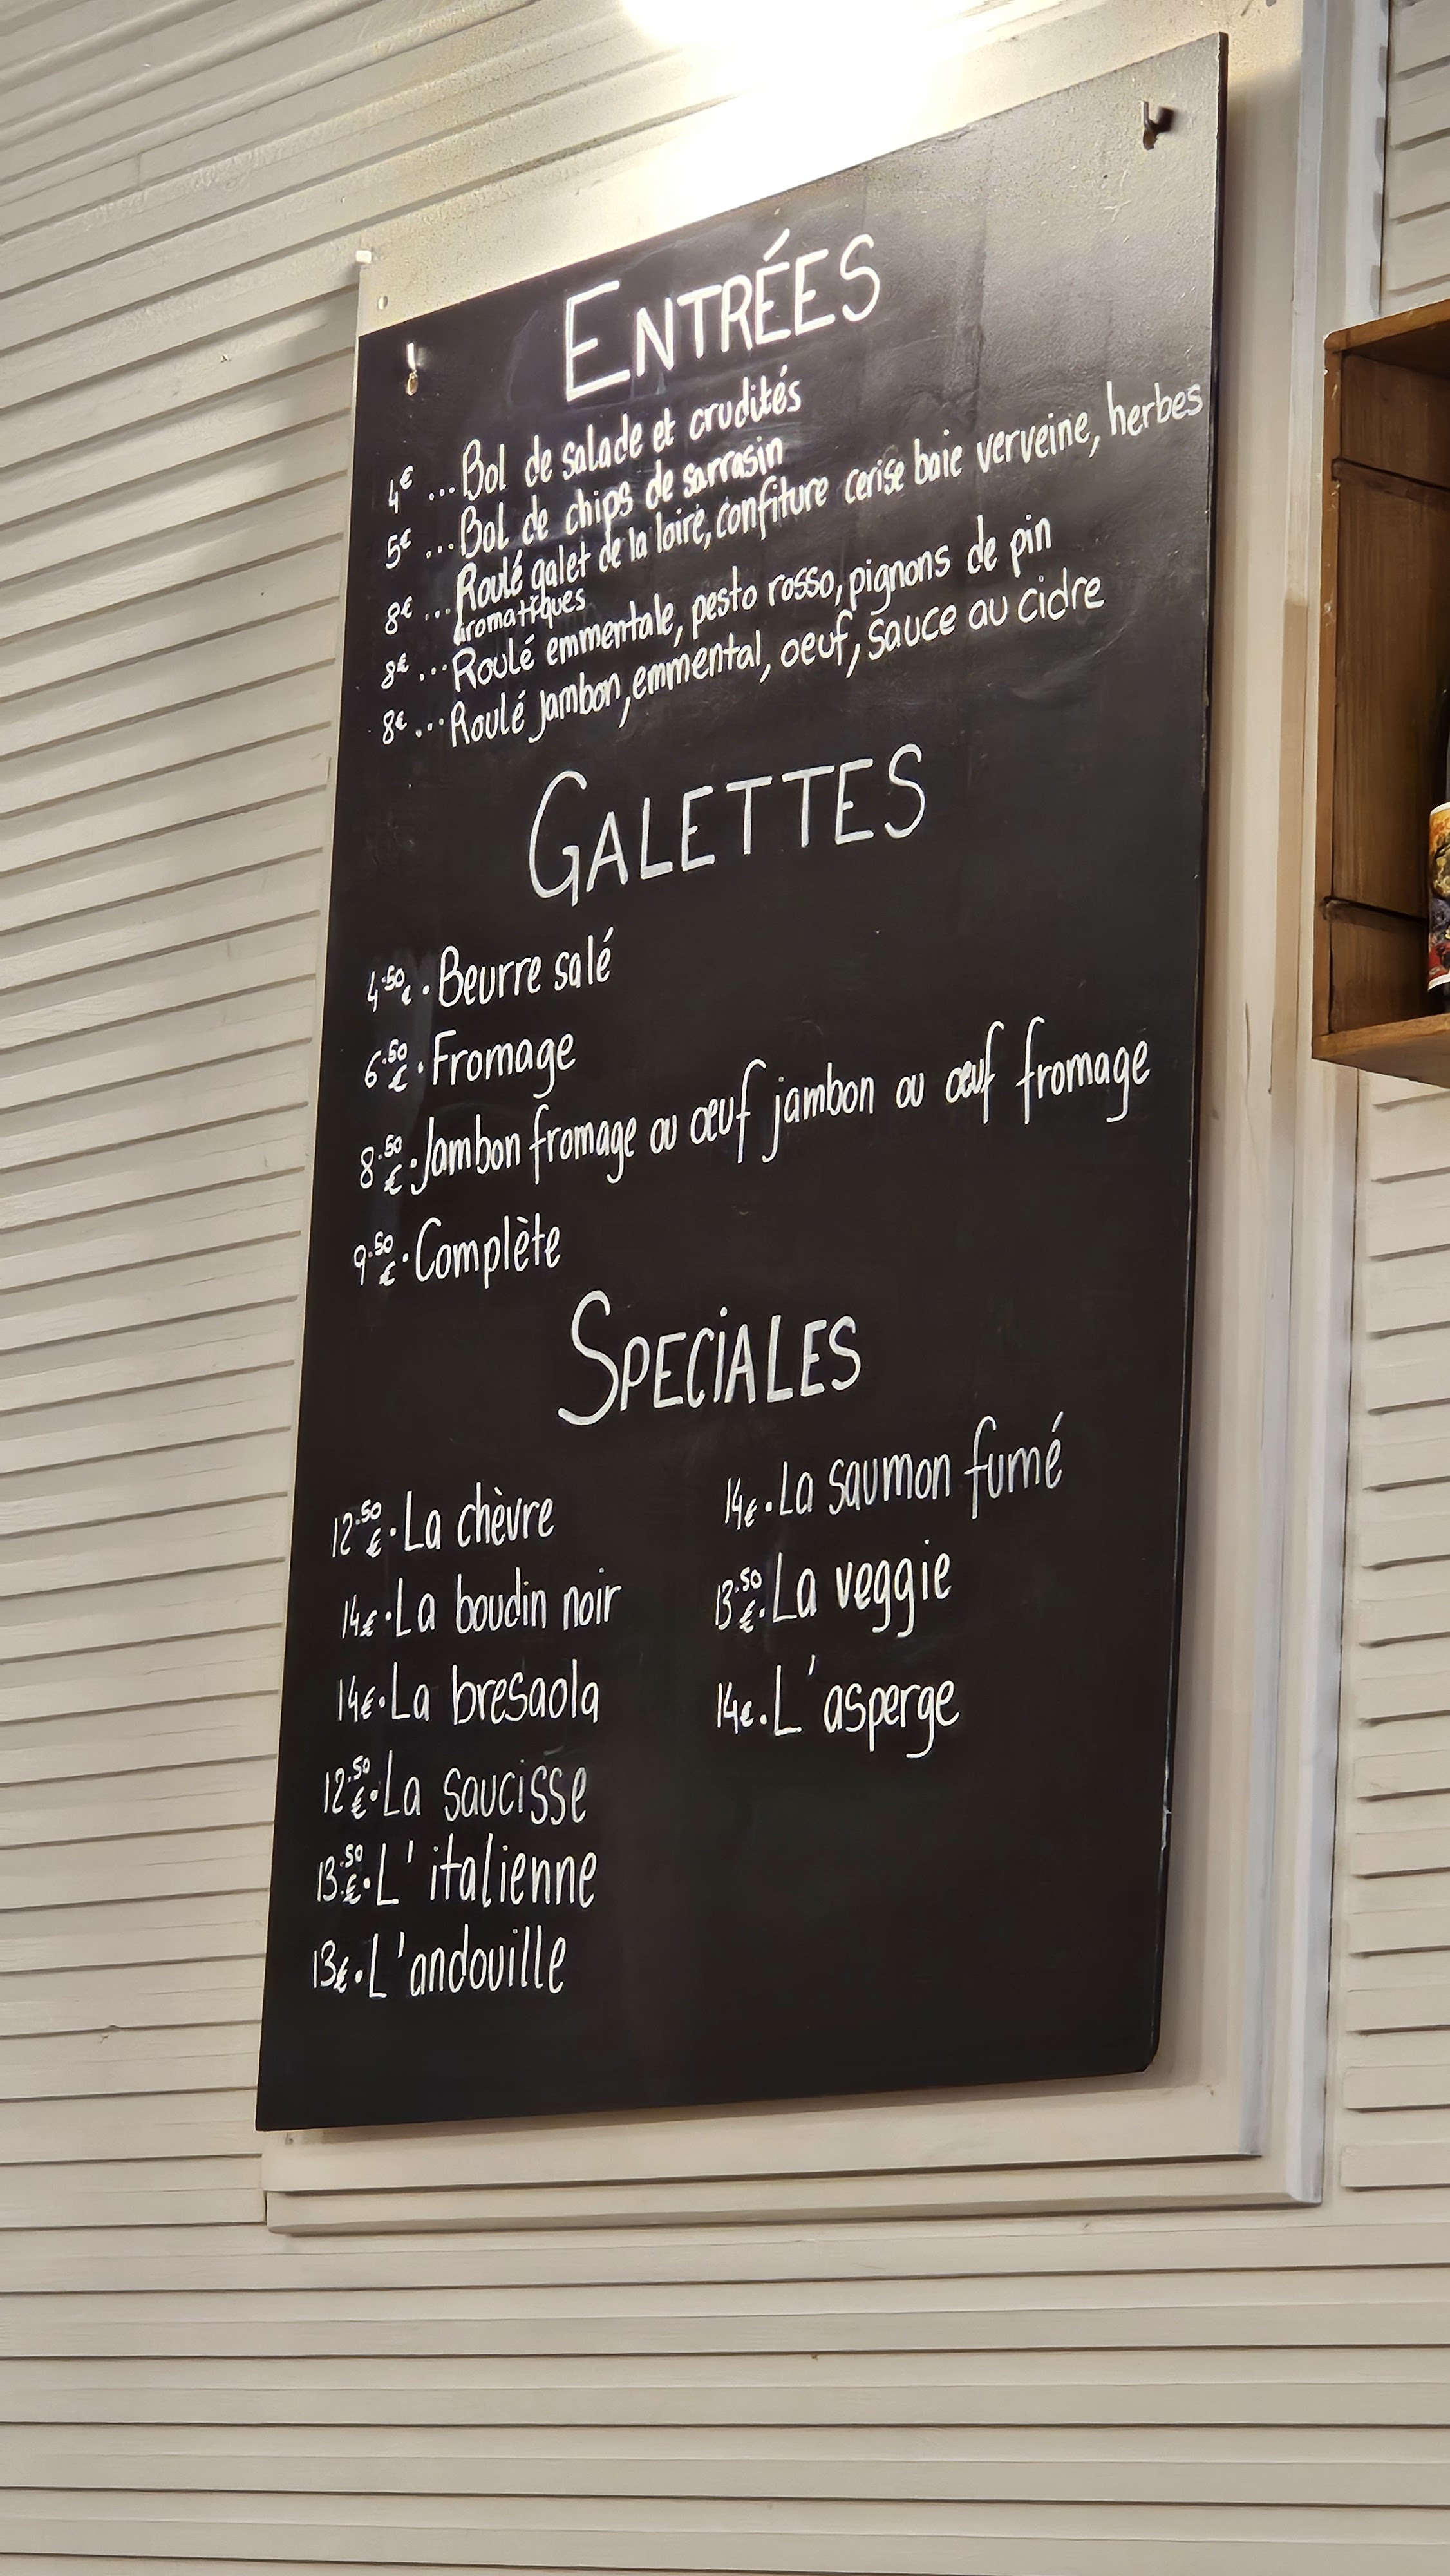 ENTRÉES
4€ ... Bol de salade et crudités
5€ ... Bol de chips de sarrasin
8€ ... Roulé galet de la loire, confiture cerise baie verveine, herbes
aromatiques
8€ ... Roulé emmentale, pesto rosso, pignons de pin
8€ ... Roulé jambon, emmental, oeuf, sauce au cidre
GALETTES
4.50€ . Beurre salé
6.50€ . Fromage
8.50€ . Jambon fromage ou œuf jambon ou œuf fromage
9.50€ . Complète
SPECiALES
12.50€ . La chèvre
14€ . La boudin noir
14€ . La bresaola
12.50€ . La saucisse
13.50€ . L'italienne
13€ . L'andouille
14€ . La saumon fumé
13.50€ . La veggie
14€ . L'asperge